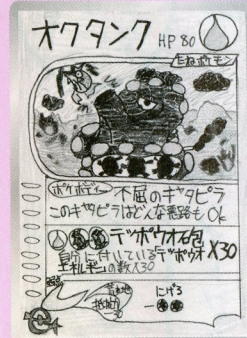 オクタンク HP 80
たねポケモン
ポケボディー 不屈のキャタピラ
このキャタピラはどんな悪路も Ok
テッポウオ砲 X30
自分に付いているテッポウオ
エネルギーの数X30
弱点
抵抗力
-30
にげる